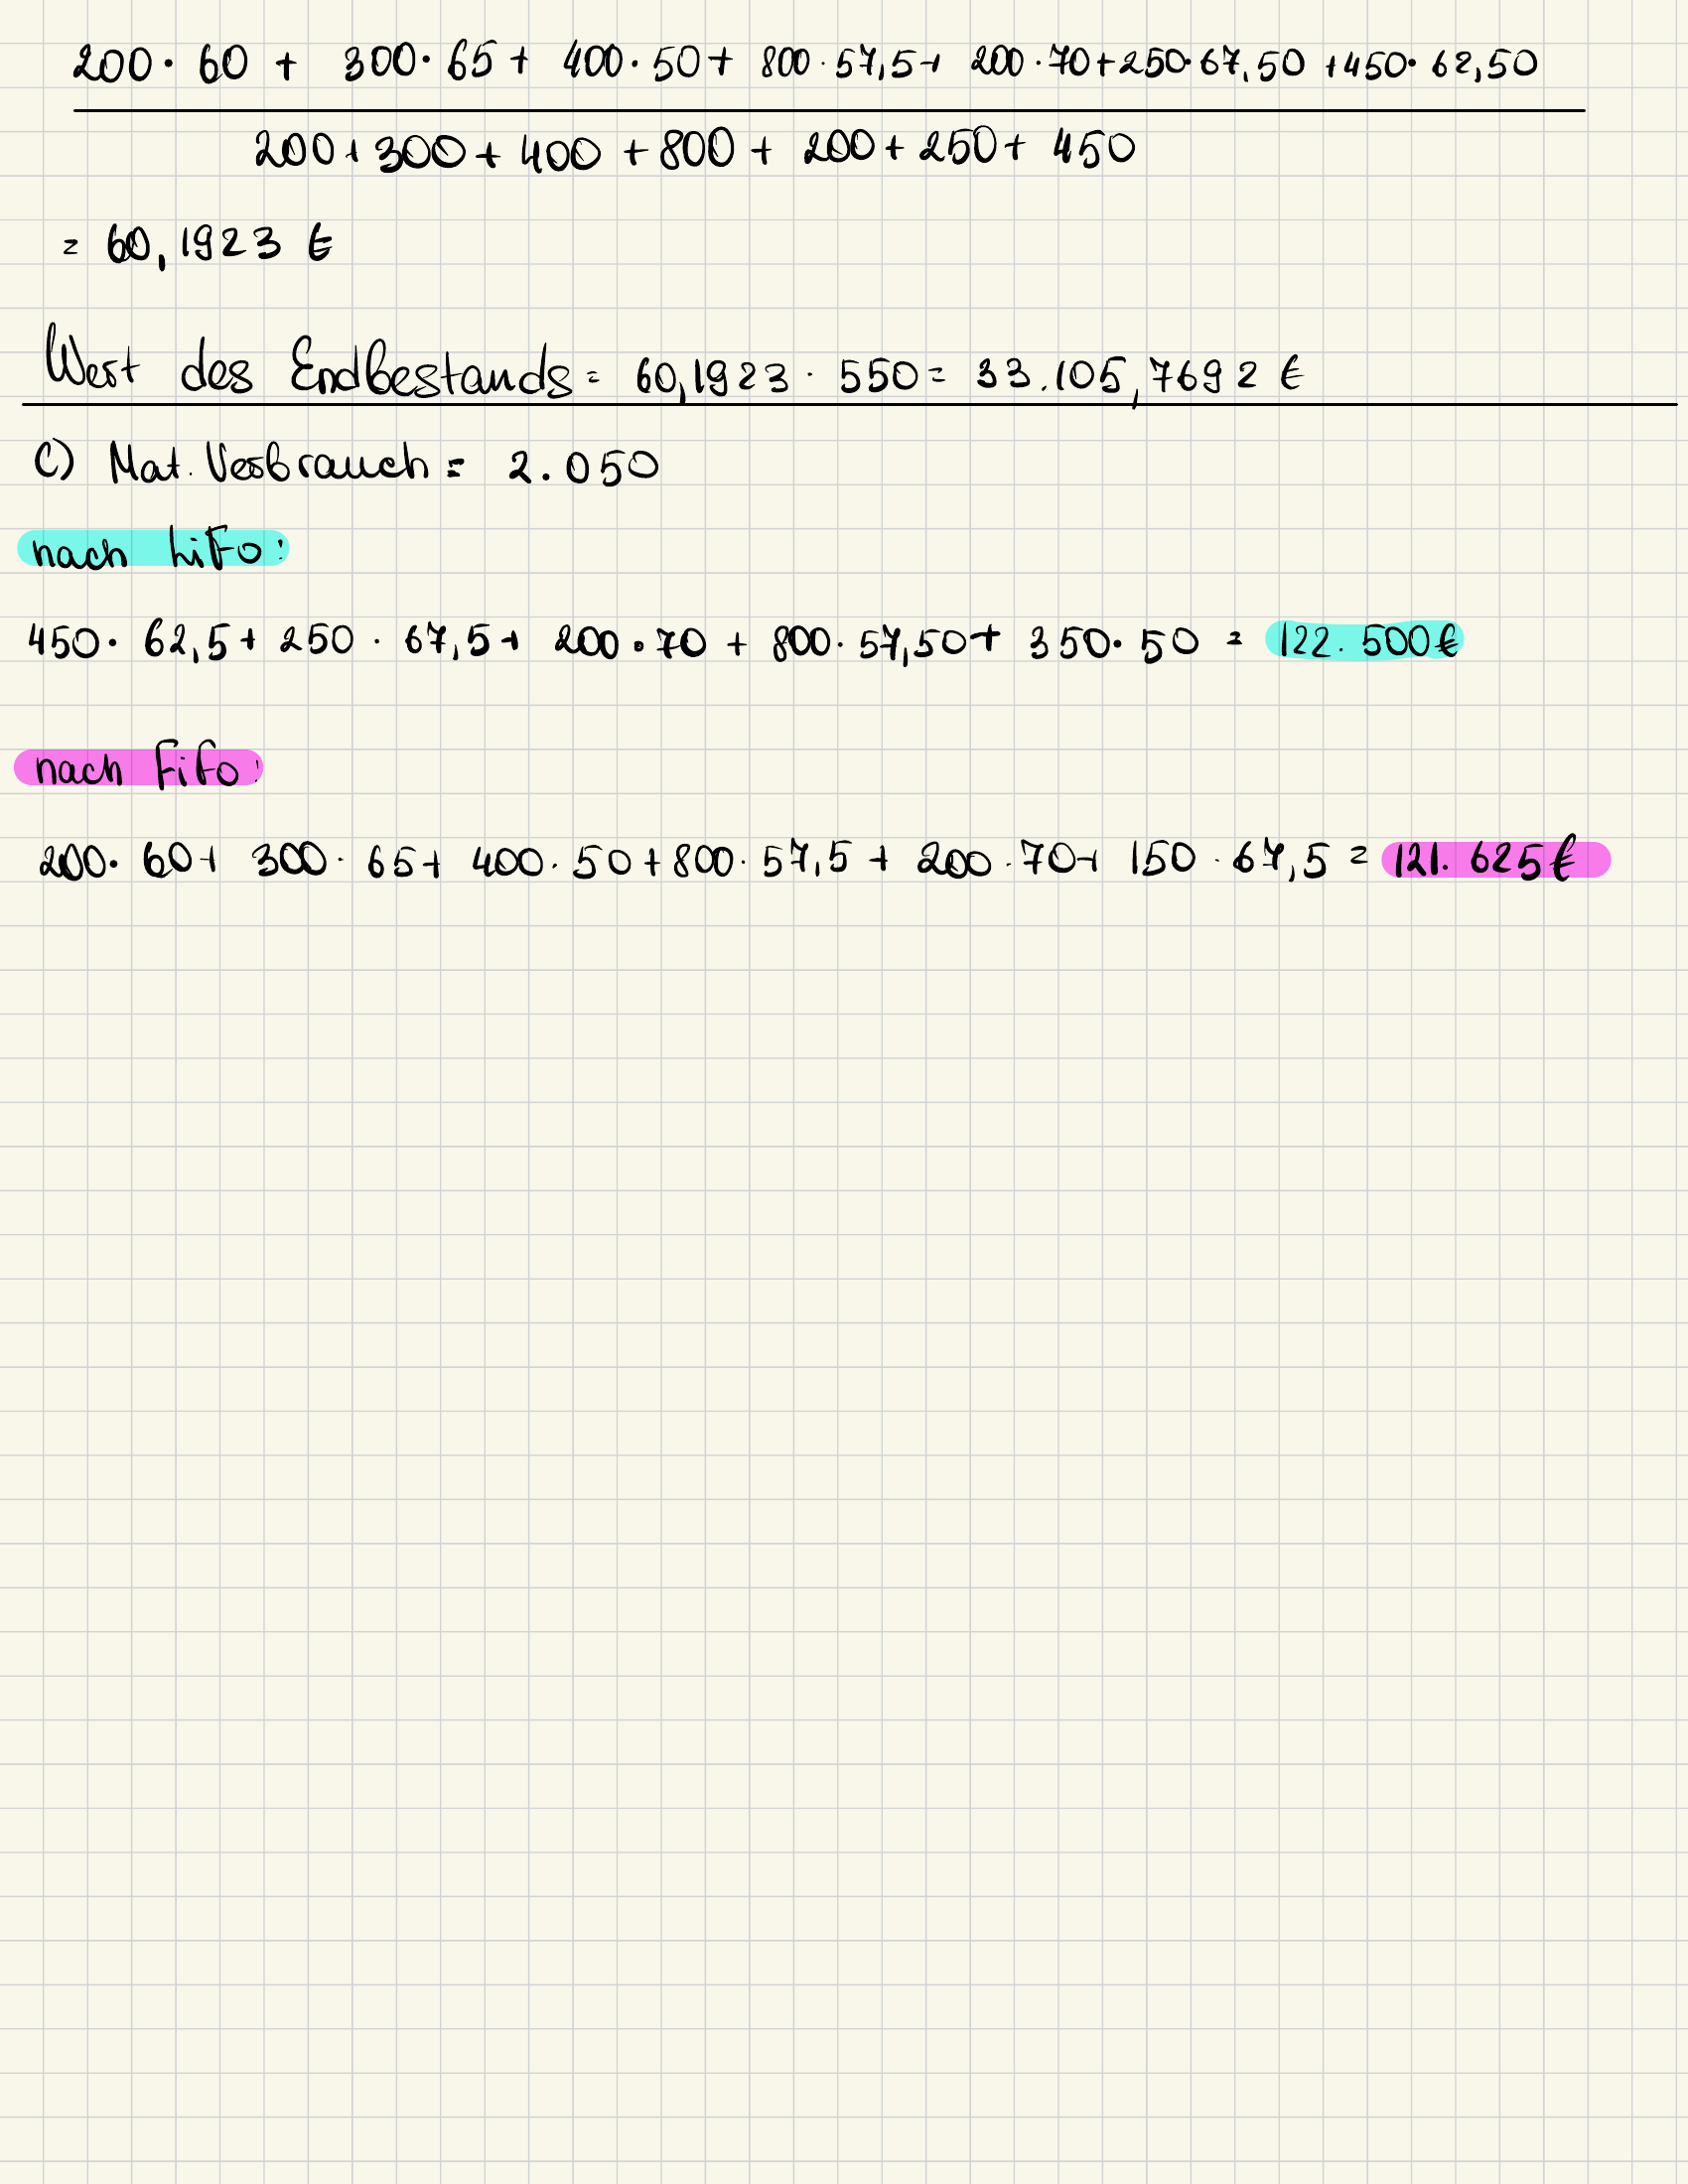 200 · 60 + 300 · 65 + 400 · 50 + 800 · 57,5 + 200 · 70 + 250 · 67,50 + 450 · 62,50
200 + 300 + 400 + 800 + 200 + 250 + 450
= 60,1923 €
Wert des Endbestands = 60,1923 · 550 = 33.105,7692 €
C) Mat. Verbrauch = 2.050
nach LiFo:
450 · 62,5 + 250 · 67,5 + 200 · 70 + 800 · 57,50 + 350 · 50 = 122.500€
nach FiFo:
200 · 60 + 300 · 65 + 400 · 50 + 800 · 57,5 + 200 · 70 + 150 · 67,5 = 121.625€